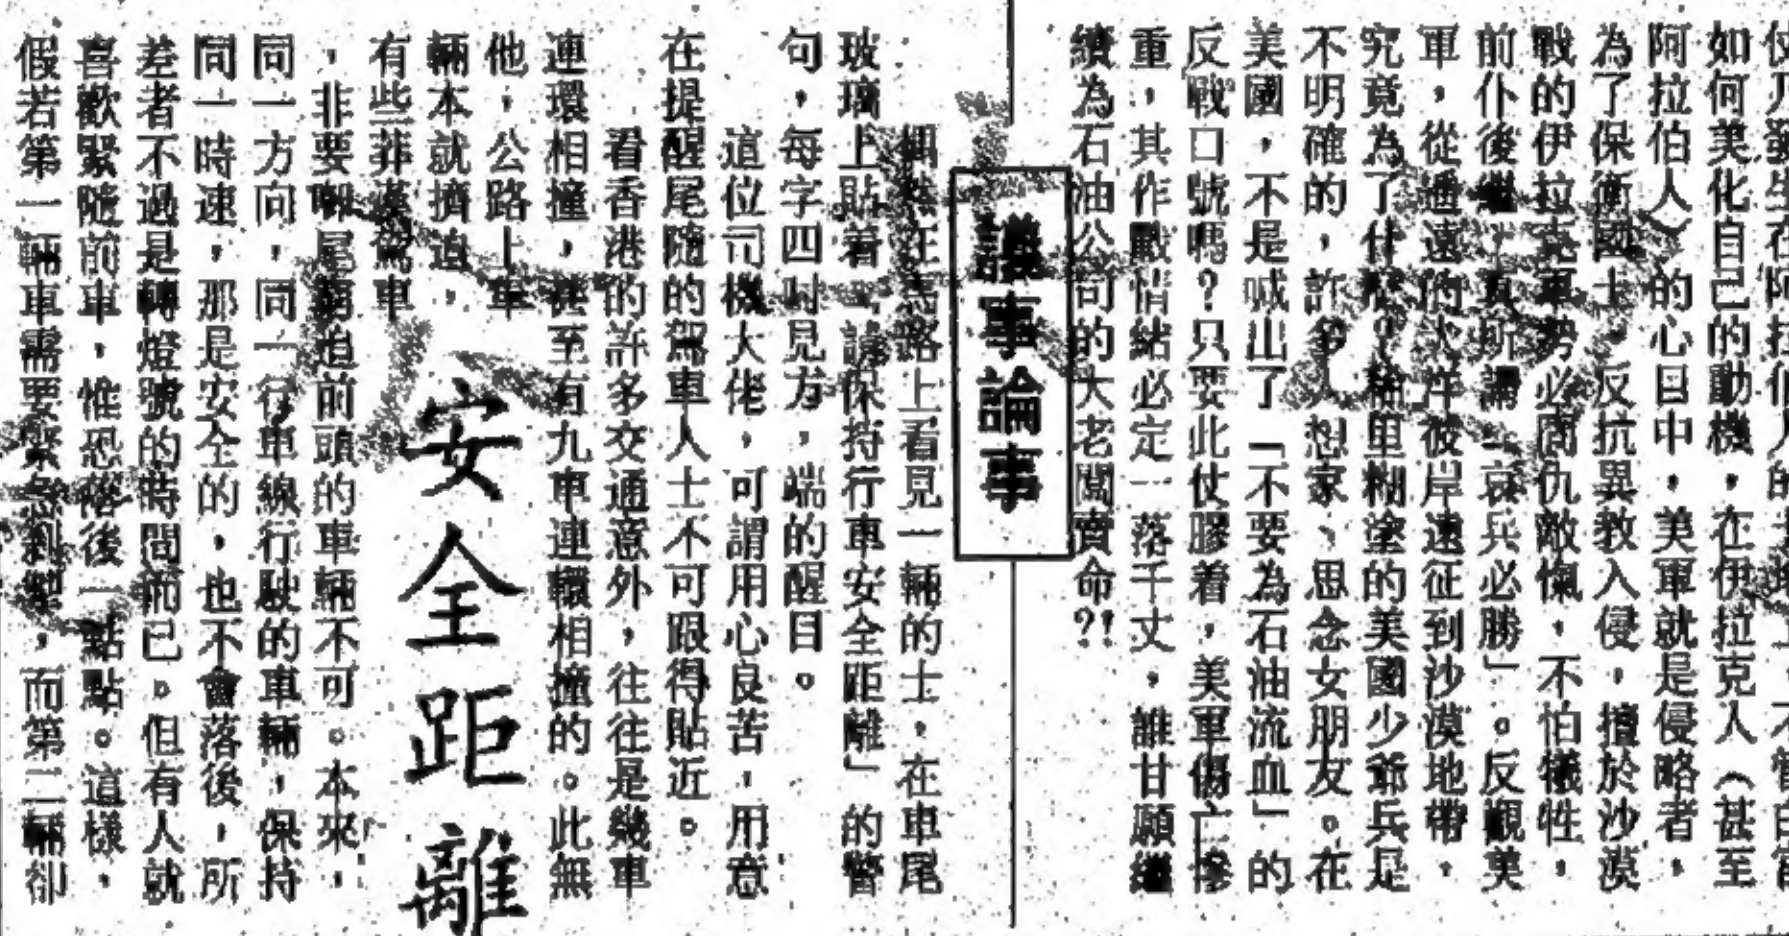 如何美化自己的動機，在伊拉克人（甚至
阿拉伯人）的心目中，美軍就是侵略者，
為了保衛國土，反抗異教入侵，擅於沙漠
戰的伊拉克軍勢必同仇敵愾，不怕犧牲，
前仆後繼，真所謂「哀兵必勝」。反觀美
軍，從遙遠的大洋彼岸遠征到沙漠地帶，
究竟為了什麼？糊里糊塗的美國少爺兵是
不明確的，許多人想家、思念女朋友。在
美國，不是喊出了「不要為石油流血」的
反戰口號嗎？只要此仗膠着，美軍傷亡慘
重，其作戰情緒必定一落千丈，誰甘願繼
續為石油公司的大老闆賣命？！
議事論事
安全距離
偶然在馬路上看見一輛的士，在車尾
玻璃上貼着「請保持行車安全距離」的警
句，每字四吋見方，端的醒目。
這位司機大佬，可謂用心良苦，用意
在提醒尾隨的駕車人士不可跟得貼近。
看香港的許多交通意外，往往是幾車
連環相撞，甚至有九車連環相撞的。此無
他，公路上車
輛本就擠迫，
有些莽漢駕車
，非要啣尾窮追前頭的車輛不可。本來，
同一方向，同一行車線行駛的車輛，保持
同一時速，那是安全的，也不會落後，所
差者不過是轉燈號的時間而已。但有人就
喜歡緊隨前車，惟恐落後一點點。這樣，
假若第一輛車需要緊急剎掣，而第二輛卻